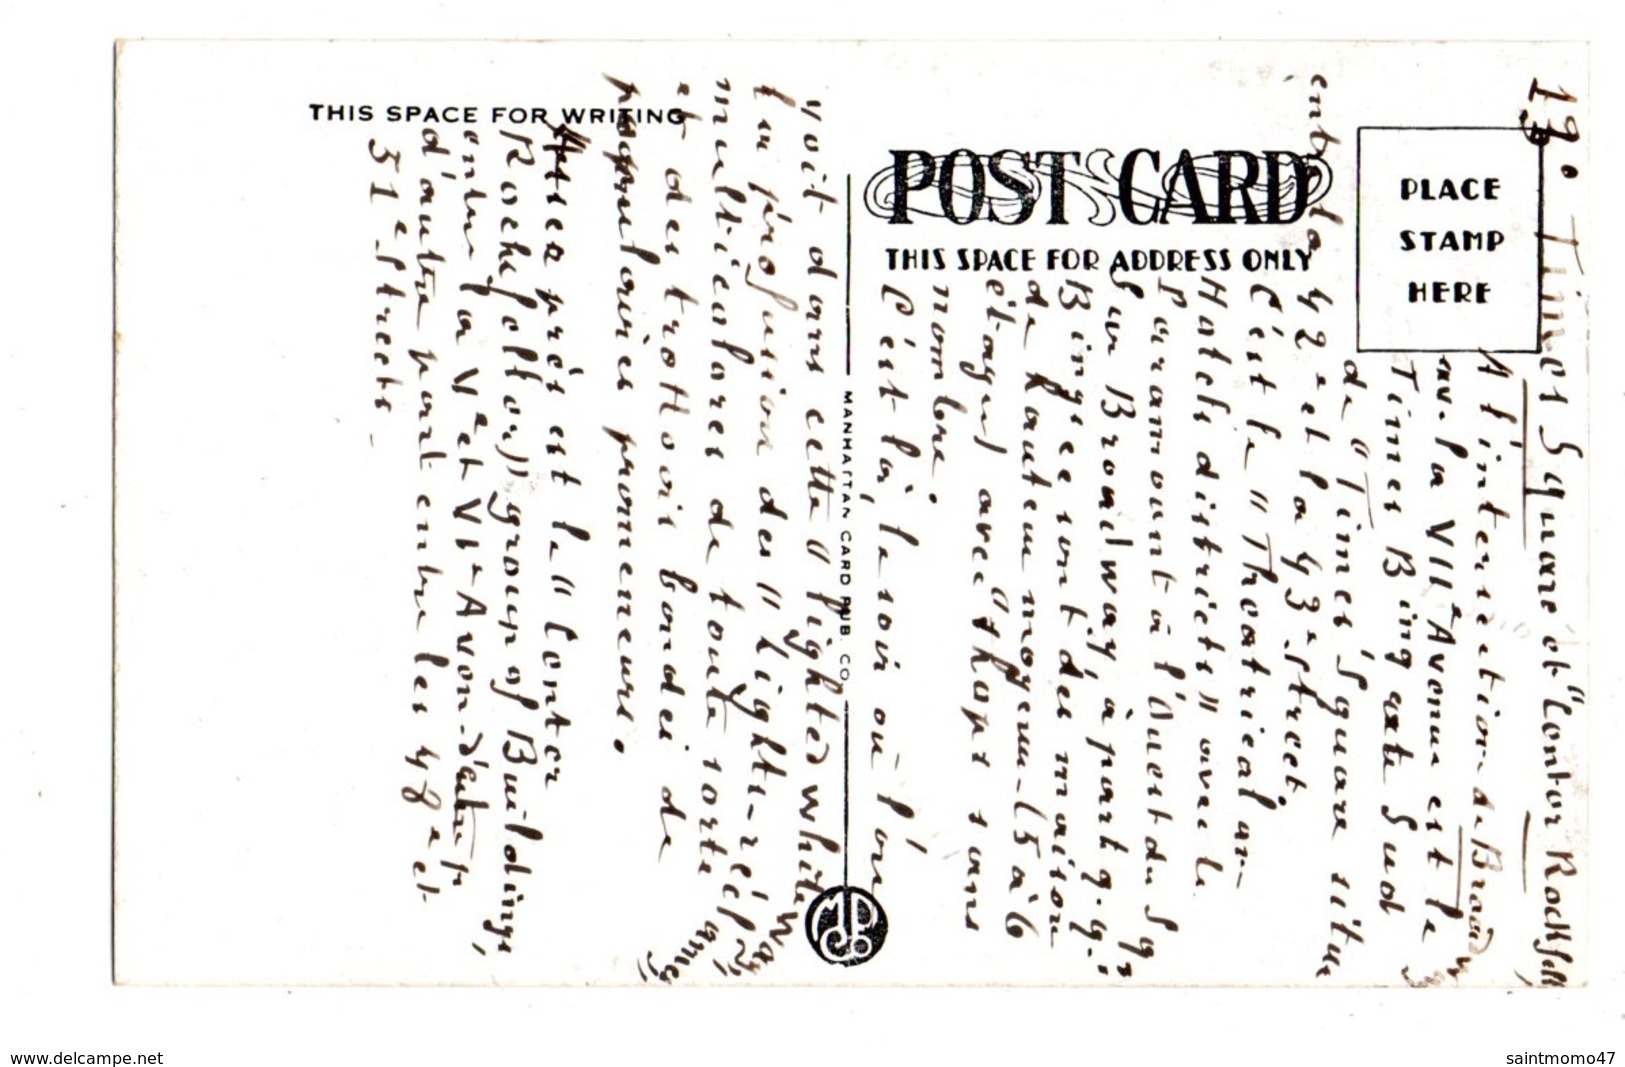 THIS SPACE FOR WRITING
POST CARD
THIS SPACE FOR ADDRESS ONLY
PLACE
STAMP
HERE
MANHATTAN CARD PUB. CO.
13° Times Square et "Center Rockfell
A l'intersection de Broadw
av. la VIIe Avenue est le
Times Bing Sud
de "Times Square situé
entre la 42e et la 43e street
C'est le "Theatrical
Hatels districts" avec le
Paramount à l'Ouest du Sq
Sur Broadway, à part q.q.
Bings ce sont des maison
de hauteur moyenne (5 à 6
étages) avec "shops sans
nombre.
C'est là, le soir où l'on
voit dans cette "lighted white way
la profusion des "Lights-réel
multicolores de toute sorte
et des trottoirs bondés de
populaires promeneurs.
Assez près est le "Center
Rockefeller)) group of Buildings,
entre la Ve et VIe Aven-
d'autre part entre les 48e et
51e Streets.
www.delcampe.net
saintmomo47